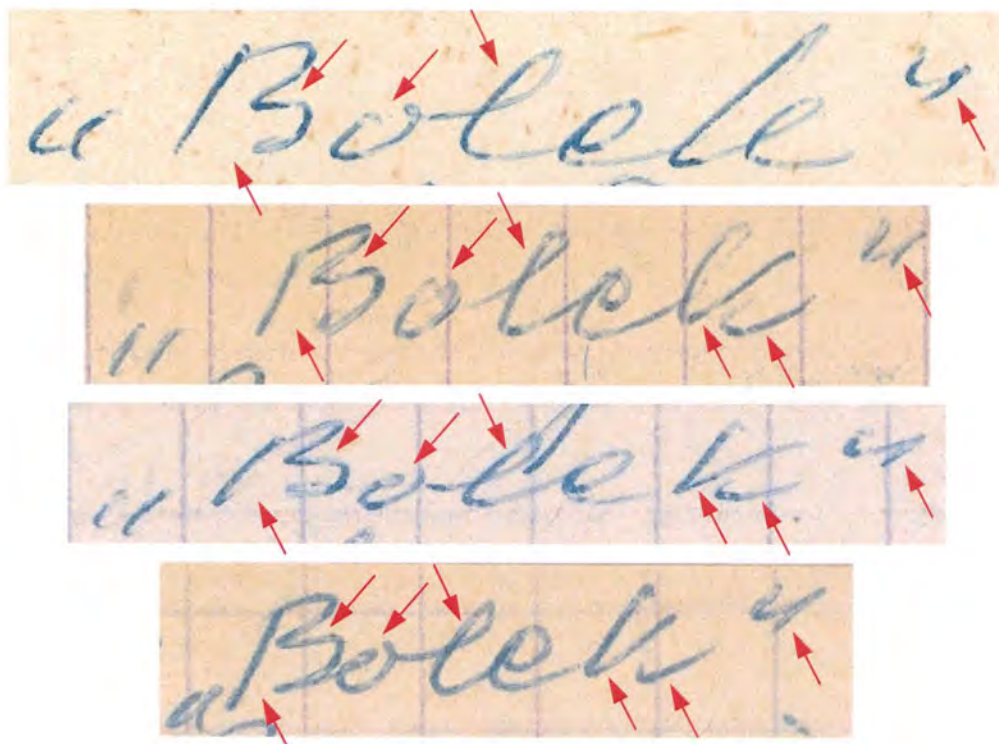 „Bolek"
„Bolek"
„Bolek"
„Bolek"